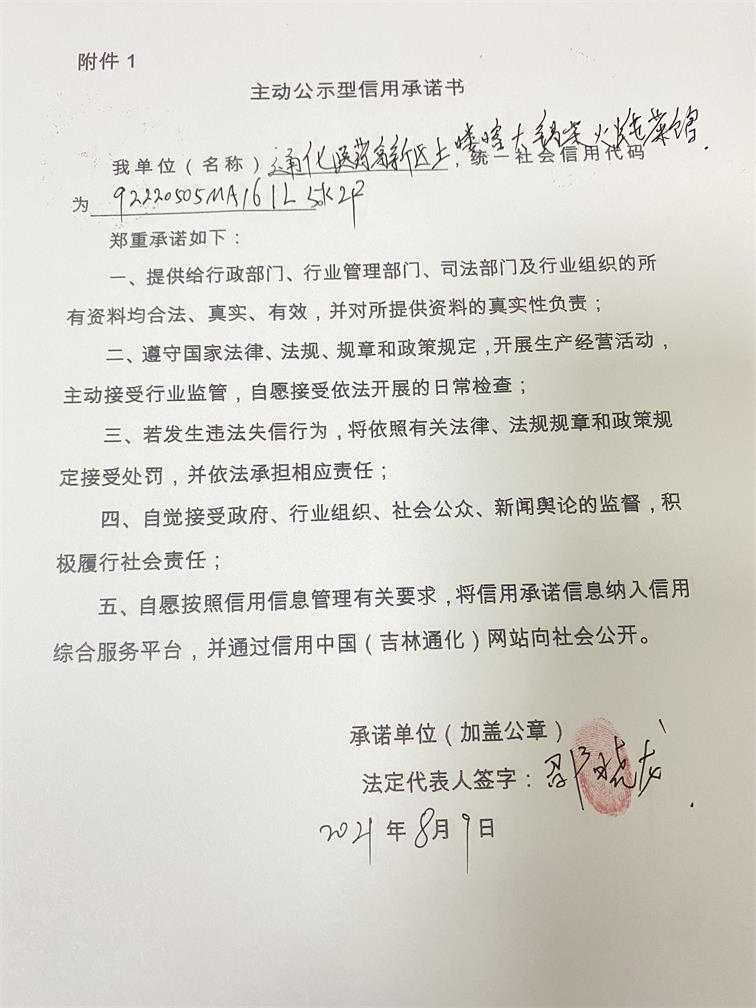 附件 1
主动公示型信用承诺书
我单位（名称）通化医药高新区土喽喀大锅柴火炖菜馆，统一社会信用代码
为 92220505MA161L5K2P
郑重承诺如下：
一、提供给行政部门、行业管理部门、司法部门及行业组织的所
有资料均合法、真实、有效，并对所提供资料的真实性负责；
二、遵守国家法律、法规、规章和政策规定，开展生产经营活动，
主动接受行业监管，自愿接受依法开展的日常检查；
三、若发生违法失信行为，将依照有关法律、法规规章和政策规
定接受处罚，并依法承担相应责任；
四、自觉接受政府、行业组织、社会公众、新闻舆论的监督，积
极履行社会责任；
五、自愿按照信用信息管理有关要求，将信用承诺信息纳入信用
综合服务平台，并通过信用中国（吉林通化）网站向社会公开。
承诺单位（加盖公章）
法定代表人签字：邵晓龙
2021 年 8 月 9 日